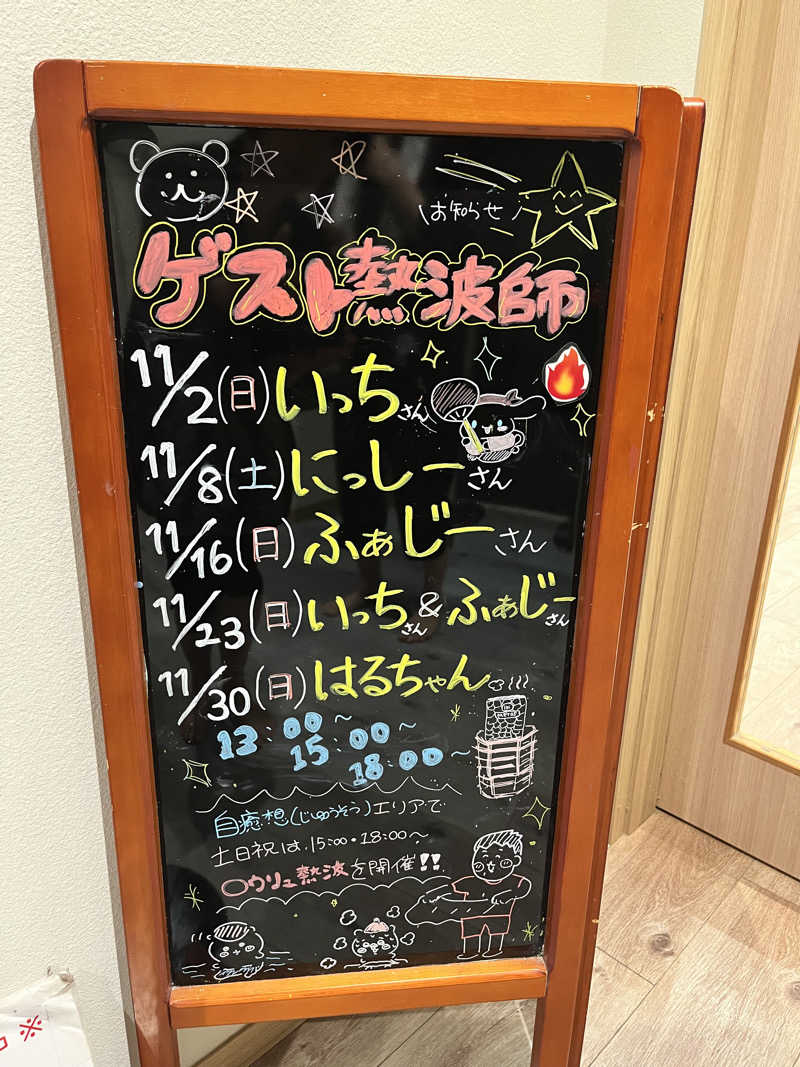 お知らせ
ゲスト熱波師
11/2(日)いっちさん
11/8(土)にっしーさん
11/16(日)ふぁじーさん
11/23(日)いっちさん&ふぁじーさん
11/30(日)はるちゃん
13:00〜
15:00〜
18:00〜
自癒想(じゆうそう)エリアで
土日祝は、15:00・18:00〜
ロウリュ熱波を開催!!
※